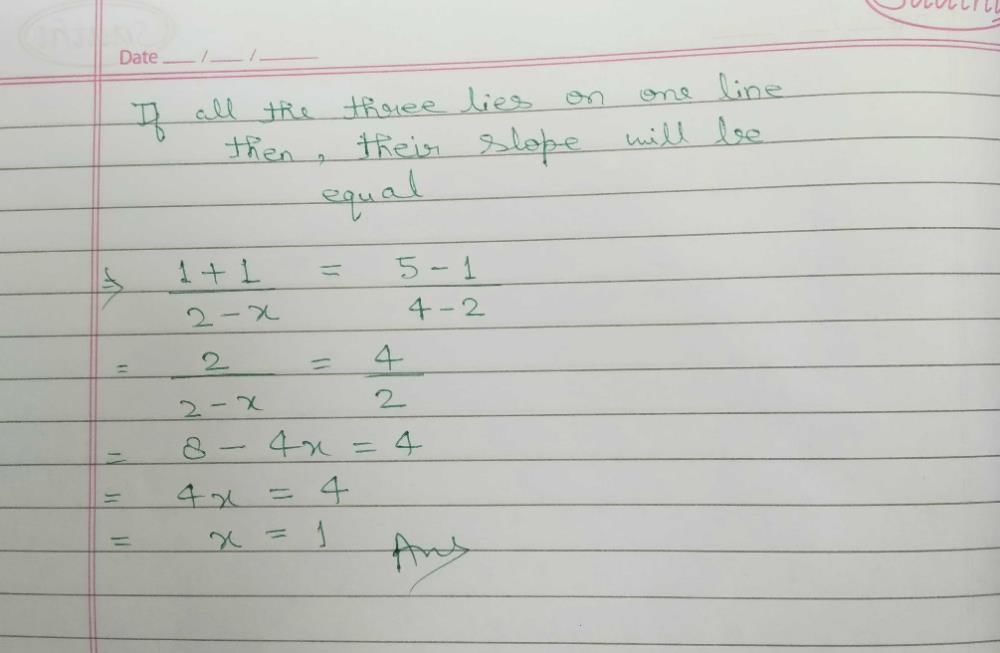 Date __ / __ / ____
If all the three lies on one line
then, their slope will be
equal
⇒ (1 + 1)/(2 - x) = (5 - 1)/(4 - 2)
= 2/(2 - x) = 4/2
= 8 - 4x = 4
= 4x = 4
= x = 1 Ans